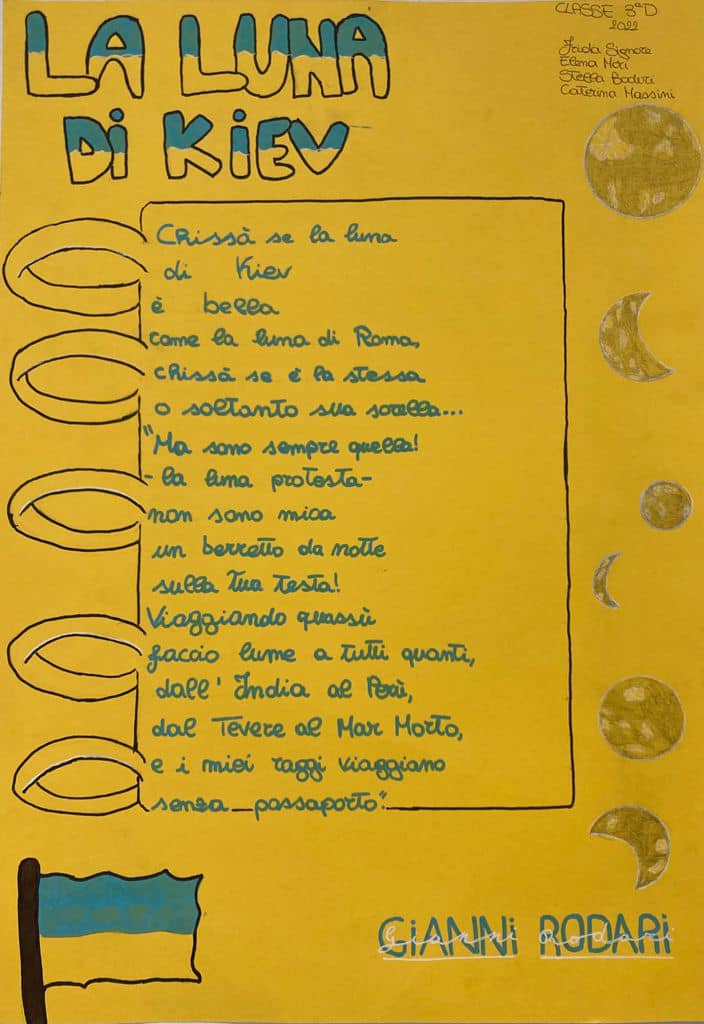 LA LUNA
DI KIEV
CLASSE 3ªD
2022
Frida Signore
Elena Mori
Stella Boduri
Caterina Massini
Chissà se la luna
di Kiev
è bella
come la luna di Roma,
chissà se è la stessa
o soltanto sua sorella...
"Ma sono sempre quella!
- la luna protesta -
non sono mica
un berretto da notte
sulla tua testa!
Viaggiando quassù
faccio lume a tutti quanti,
dall'India al Perù,
dal Tevere al Mar Morto,
e i miei raggi viaggiano
senza passaporto".
GIANNI RODARI
Gianni Rodari